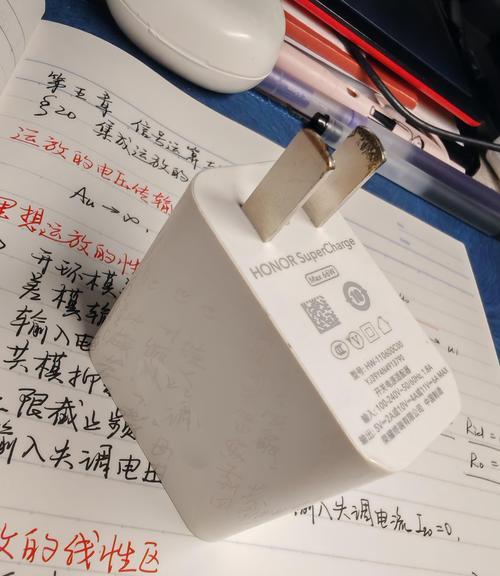 第五章 信号运算
§20 集成运放的
运放的电压传输
Au→∞.
理想运放的性
开环模
差模输
输入电
共模抑
限截止频
输入失调电压
输入失调电流 I₁₀=0,
的线性区
Rid =
Ro =
HONOR SuperCharge
Max 66W
型号: HW-110600C00
开关电源适配器
输入: 100-240V~50/60Hz 1.8A
输出: 5V⎓2A或10V⎓4A或11V⎓6A MAX
荣耀终端有限公司 中国制造